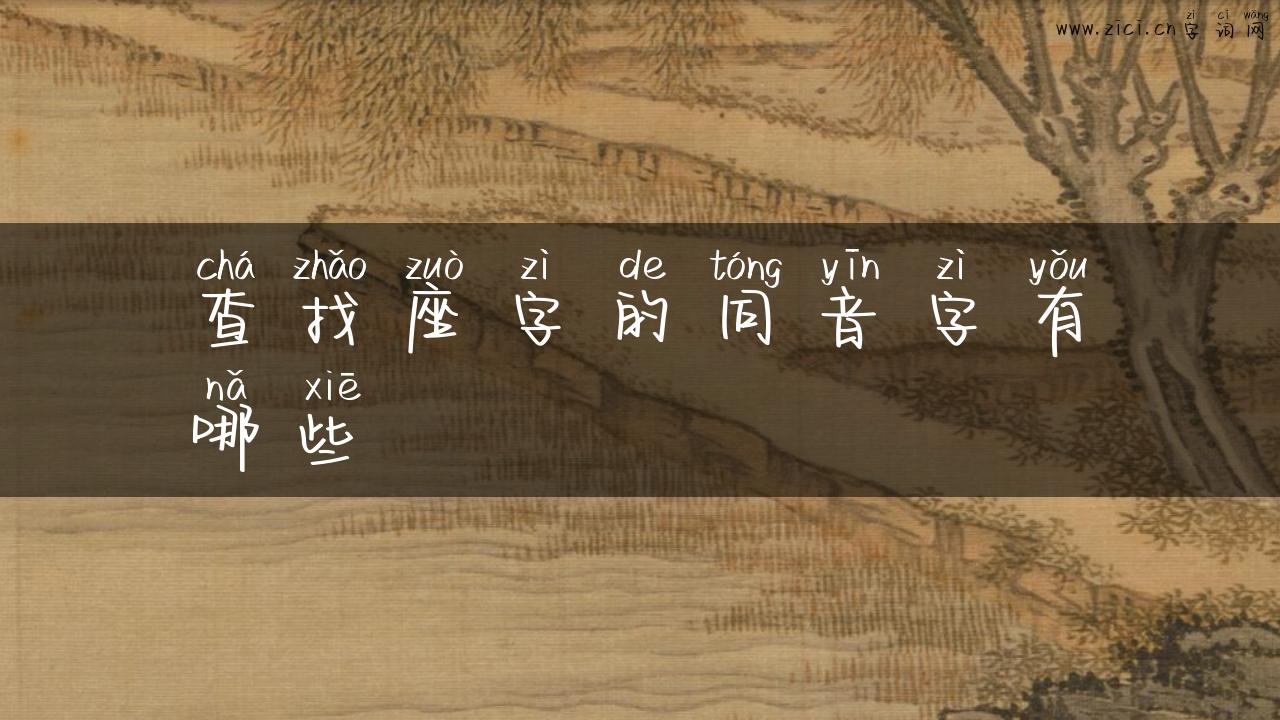 zì cí wǎng
www.zici.cn字词网
chá zhǎo zuò zì de tóng yīn zì yǒu
查找座字的同音字有
nǎ xiē
哪些